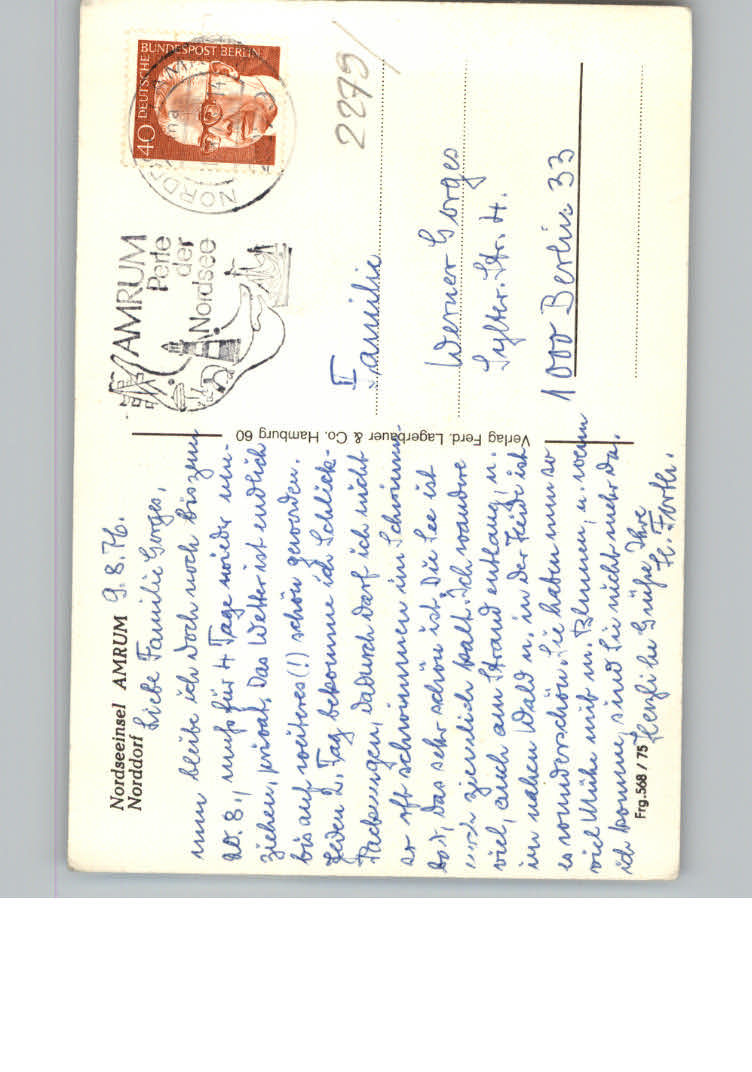 Nordseeinsel AMRUM
Norddorf
9.8.76.
Liebe Familie Gorges,
nun bleibe ich doch noch bis zum
20.8., muß für 4 Tage wieder um-
ziehen, privat. Das Wetter ist endlich
bis auf weiteres (!) schön geworden.
Jeden 2. Tag bekomme ich Schlick-
Packungen, dadurch darf ich nicht
so oft schwimmen im Schwimm-
bad, das sehr schön ist. Die See ist
noch ziemlich kalt. Ich wandere
viel, auch am Strand entlang, u.
im nahen Wald u. in der Heide ist
es wunderschön. Sie haben nun so
viel Mühe mit m. Blumen, u. wenn
ich komme, sind Sie nicht mehr da.
Herzliche Grüße Ihre
H. Forth.
Frg.568 / 75
Verlag Ferd. Lagerbauer & Co. Hamburg 60
AMRUM
Perle
der
Nordsee
DEUTSCHE BUNDESPOST BERLIN
40
NORDDORF
2275/
II
Familie
Werner Gorges
Sylter. Str. 4.
1000 Berlin 33